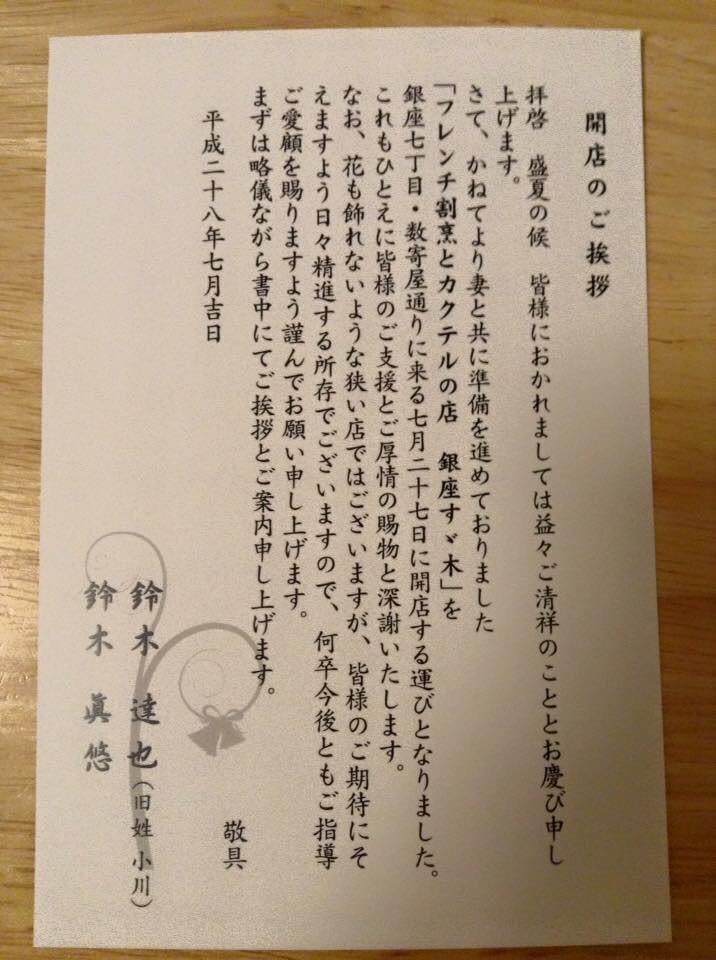 開店のご挨拶
拝啓　盛夏の候　皆様におかれましては益々ご清祥のこととお慶び申し
上げます。
さて、かねてより妻と共に準備を進めておりました
「フレンチ割烹とカクテルの店　銀座すゞ木」を
銀座七丁目・数寄屋通りに来る七月二十七日に開店する運びとなりました。
これもひとえに皆様のご支援とご厚情の賜物と深謝いたします。
なお、花も飾れないような狭い店ではございますが、皆様のご期待にそ
えますよう日々精進する所存でございますので、何卒今後ともご指導
ご愛顧を賜りますよう謹んでお願い申し上げます。
まずは略儀ながら書中にてご挨拶とご案内申し上げます。
敬具
平成二十八年七月吉日
鈴木　達也（旧姓 小川）
鈴木　眞悠